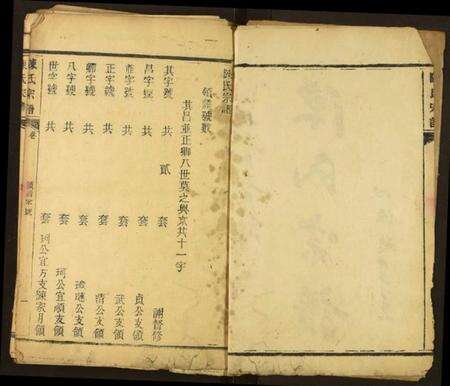 陳氏宗譜
領譜號數
其昌並正卿八世莫之與京共十一字
其字號 共 貳 套 謝督修
昌字號 共 套 貞公支領
並字號 共 套 武公支領
正字號 共 套 清公支領
卿字號 共 套 公支領
八字號 共 套 珂公宜頎支領
世字號 共 套 珂公宜方支陳宗月領
陳氏宗譜 卷 領譜字號 一